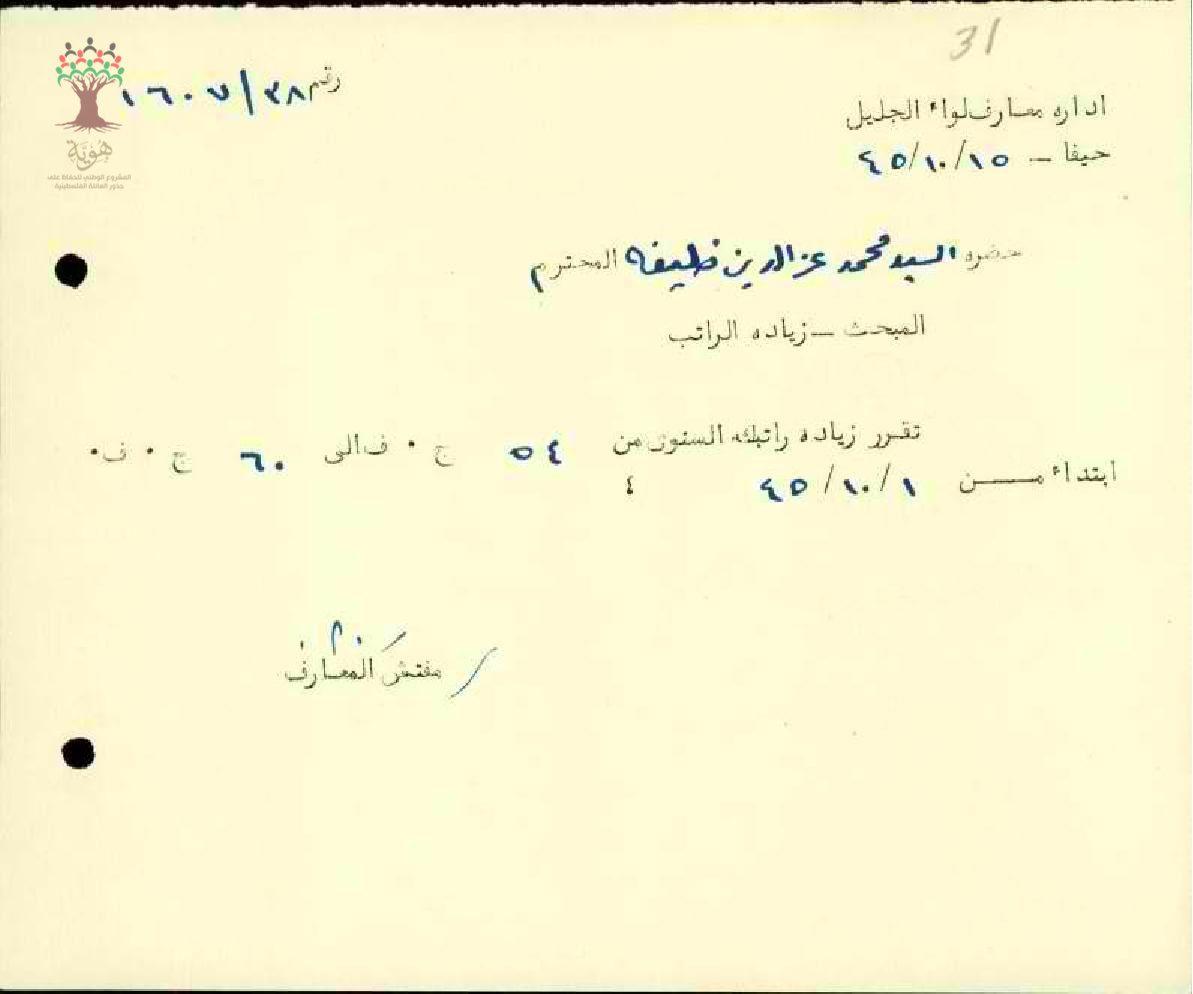 31
رقم ١٦٠٧/٣٨
اداره معارف لواء الجليل
حيفا – ٤٥/١٠/١٥
حضره السيد محمد عز الدين خليفه المحترم
المبحث – زياده الراتب
تقرر زياده راتبك السنوى من ٥٤ ج ٠ ف الى ٦٠ ج ٠ ف٠
ابتداء مـــن ٤٥/١٠/١
٤
مفتش المعارف
هُوِيَّة
المشروع الوطني للحفاظ على
جذور العائلة الفلسطينية